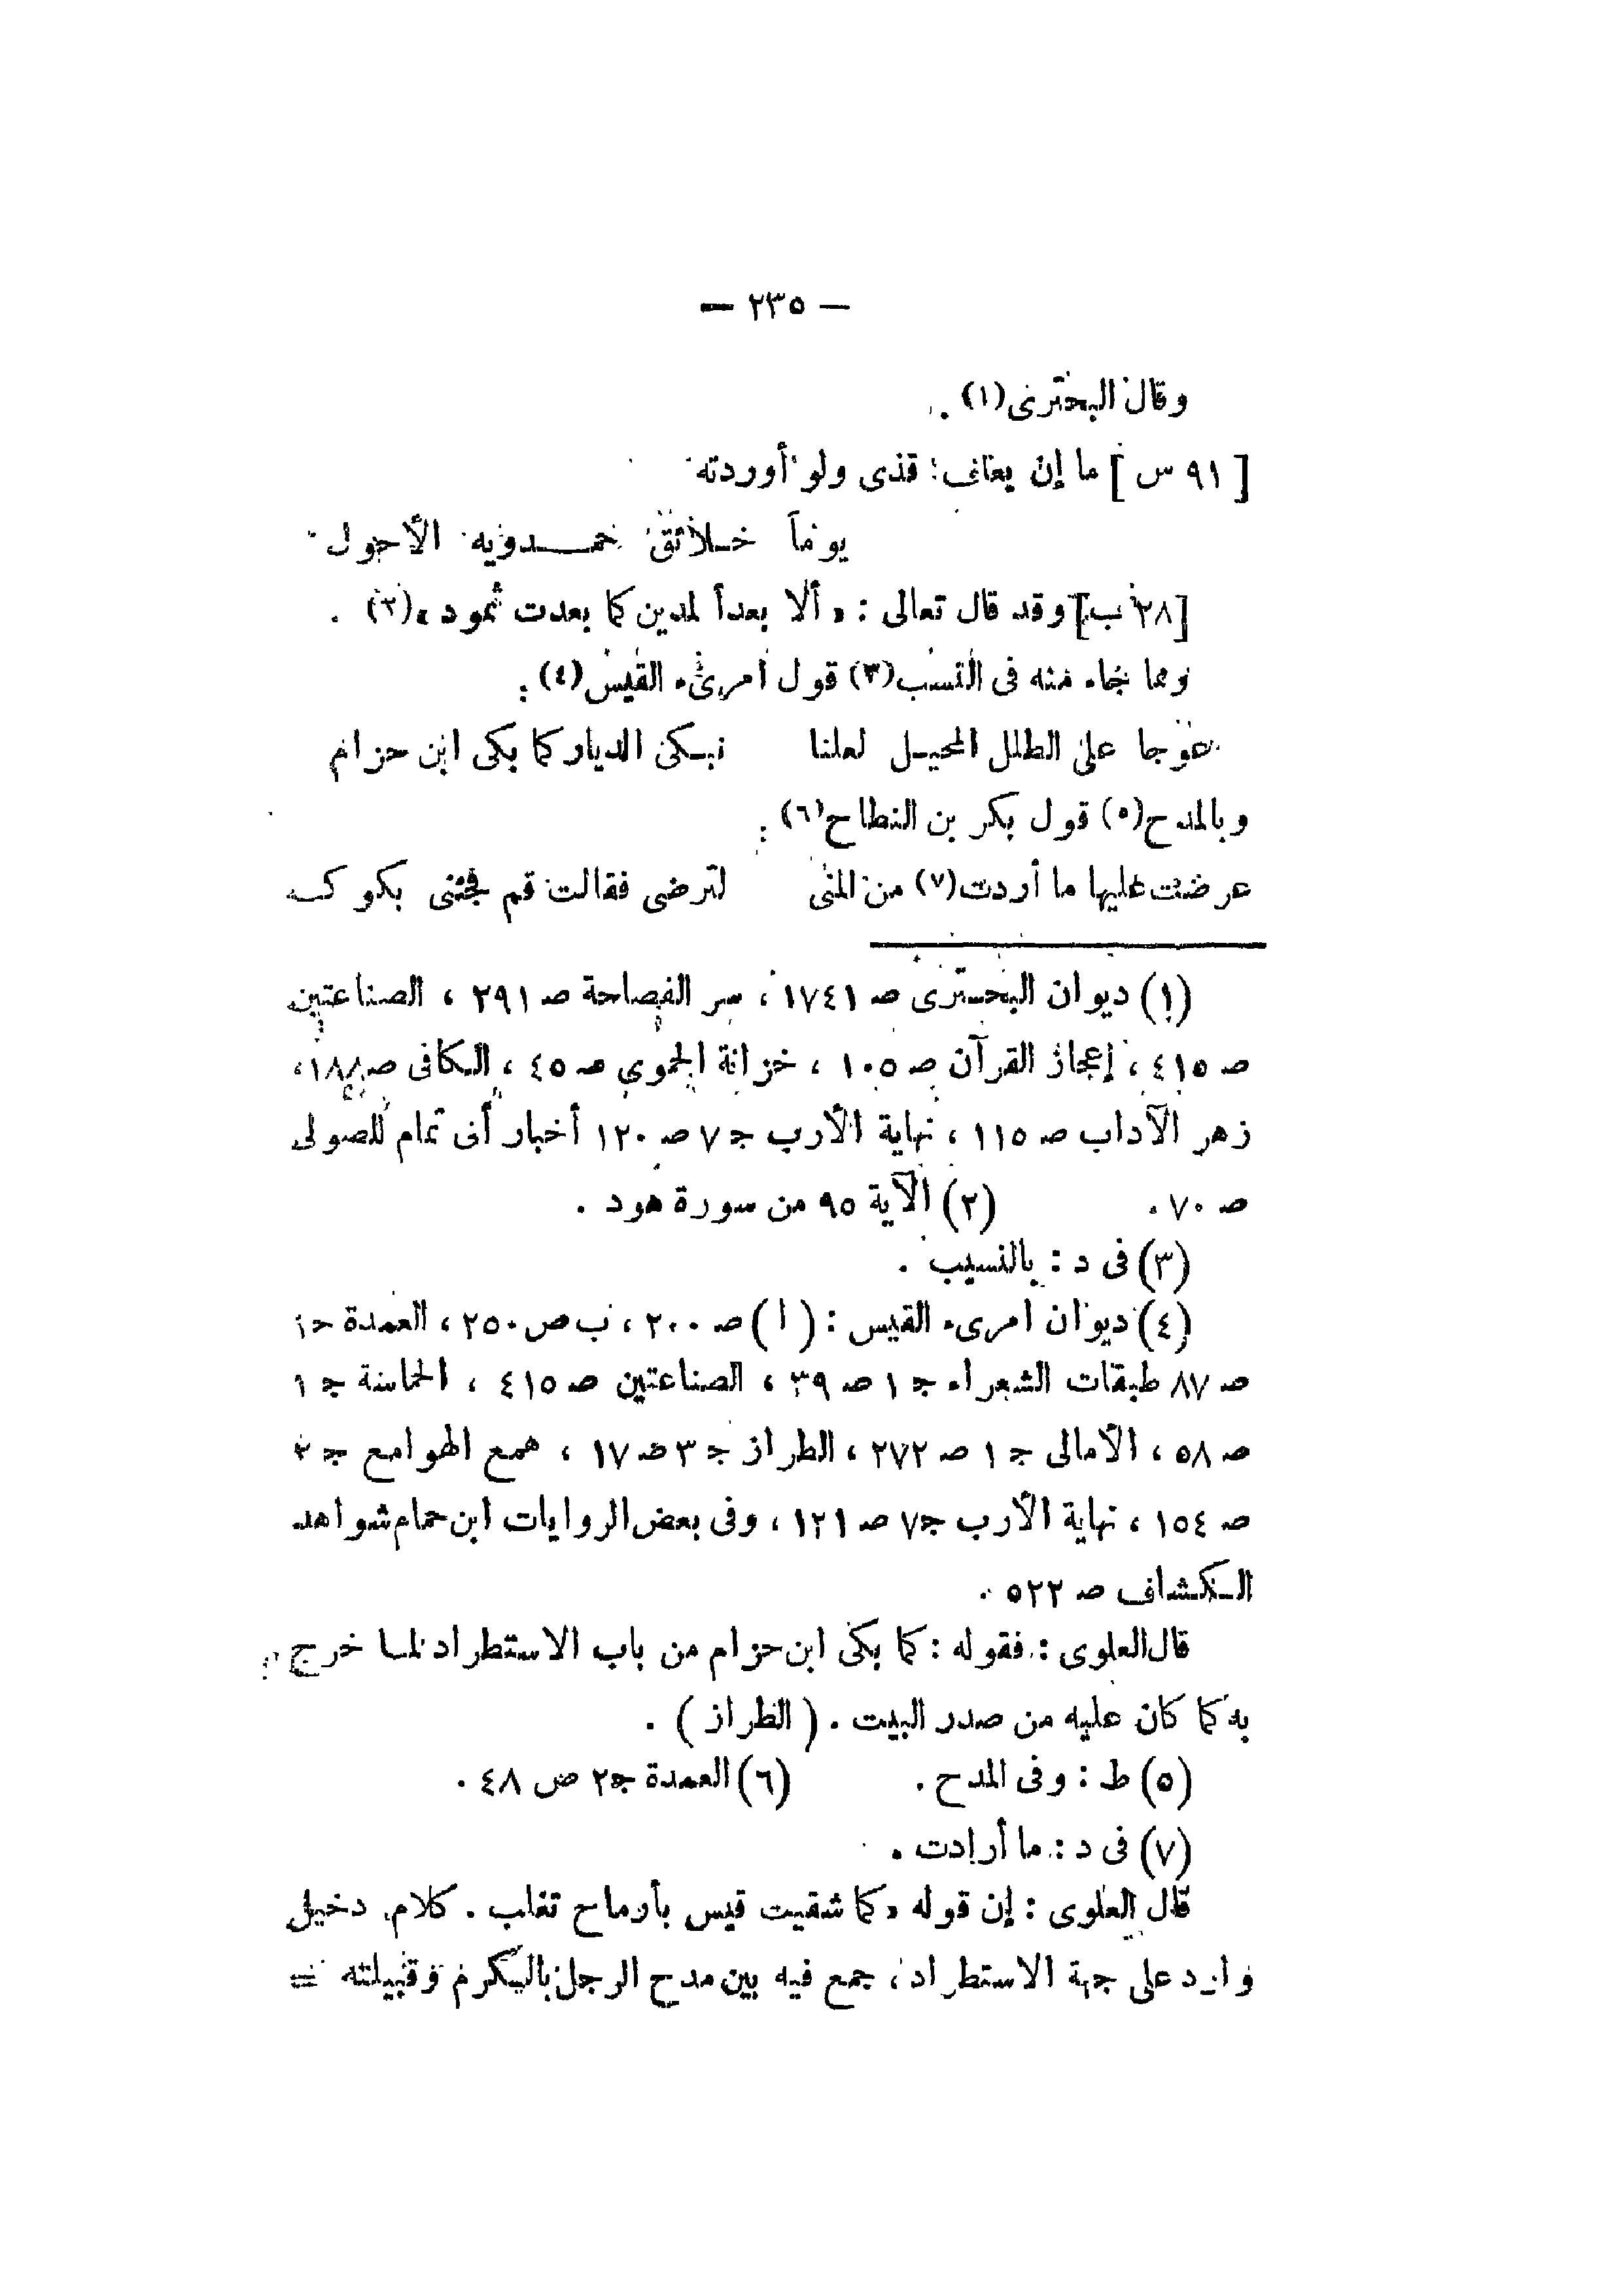 — ٢٣٥ —
وقال البحترى(١) .
[ ٩١ س ] ما إن يعاف قذى ولو أوردته
يوماً خلائق حمدويه الأحول
[٢٨ ب] وقد قال تعالى : « ألا بعداً لمدين كما بعدت ثمود »(٢) .
ومما جاء منه فى النسب(٣) قول امرئ القيس(٤) :
عوجا على الطلل المحيل لعلنا نبكى الديار كما بكى ابن حزام
وبالمدح(٥) قول بكر بن النطاح(٦) :
عرضت عليها ما أردت(٧) من المنى لترضى فقالت قم فجئنى بكوكب
(١) ديوان البحترى صـ ١٧٤١ ، سر الفصاحة صـ ٢٩١ ، الصناعتين
صـ ٤١٥ ، إعجاز القرآن صـ ١٠٥ ، خزانة الحموى صـ ٤٥ ، الكافى صـ ١٨٨ ،
زهر الآداب صـ ١١٥ ، نهاية الأرب جـ ٧ صـ ١٢٠ أخبار أبى تمام للصولى
صـ ٧٠ . (٢) الآية ٩٥ من سورة هود .
(٣) فى د : بالنسيب .
(٤) ديوان امرىء القيس : ( ا ) صـ ٢٠٠ ، ب ص ٢٥٠ ، العمدة حـ ١
صـ ٨٧ طبقات الشعراء جـ ١ صـ ٣٩ ، الصناعتين صـ ٤١٥ ، الحماسة جـ ١
صـ ٥٨ ، الأمالى جـ ١ صـ ٢٧٢ ، الطراز جـ ٣ صـ ١٧ ، همع الهوامع جـ ٢
صـ ١٥٤ ، نهاية الأرب جـ ٧ صـ ١٢١ ، وفى بعض الروايات ابن حمام شواهد
الكشاف صـ ٥٢٢ .
قال العلوى : فقوله : كما بكى ابن حزام من باب الاستطراد لما خرج
به كما كان عليه من صدر البيت . ( الطراز ) .
(٥) ط : وفى المدح . (٦) العمدة جـ ٢ ص ٤٨ .
(٧) فى د : ما أرادت .
قال العلوى : إن قوله « كما شقيت قيس بأرماح تغلب . كلام دخيل
وارد على جهة الاستطراد ، جمع فيه بين مدح الرجل بالكرم وقبيلته =